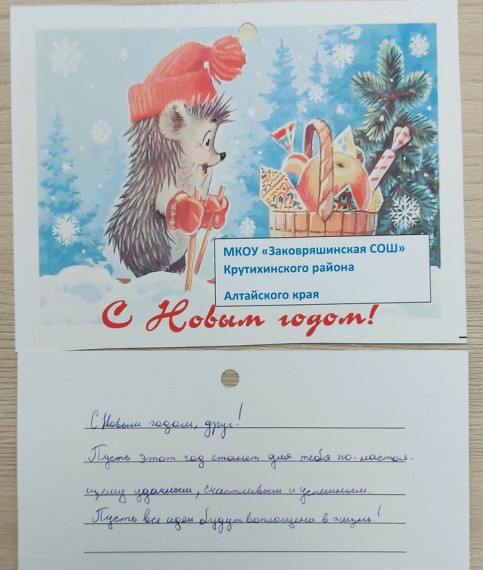 МКОУ «Заковряшинская СОШ»
Крутихинского района
Алтайского края
С Новым годом!
С Новым годом, друг!
Пусть этот год станет для тебя по-настоя-
щему удачным, счастливым и успешным.
Пусть все идеи будут воплощены в жизнь!